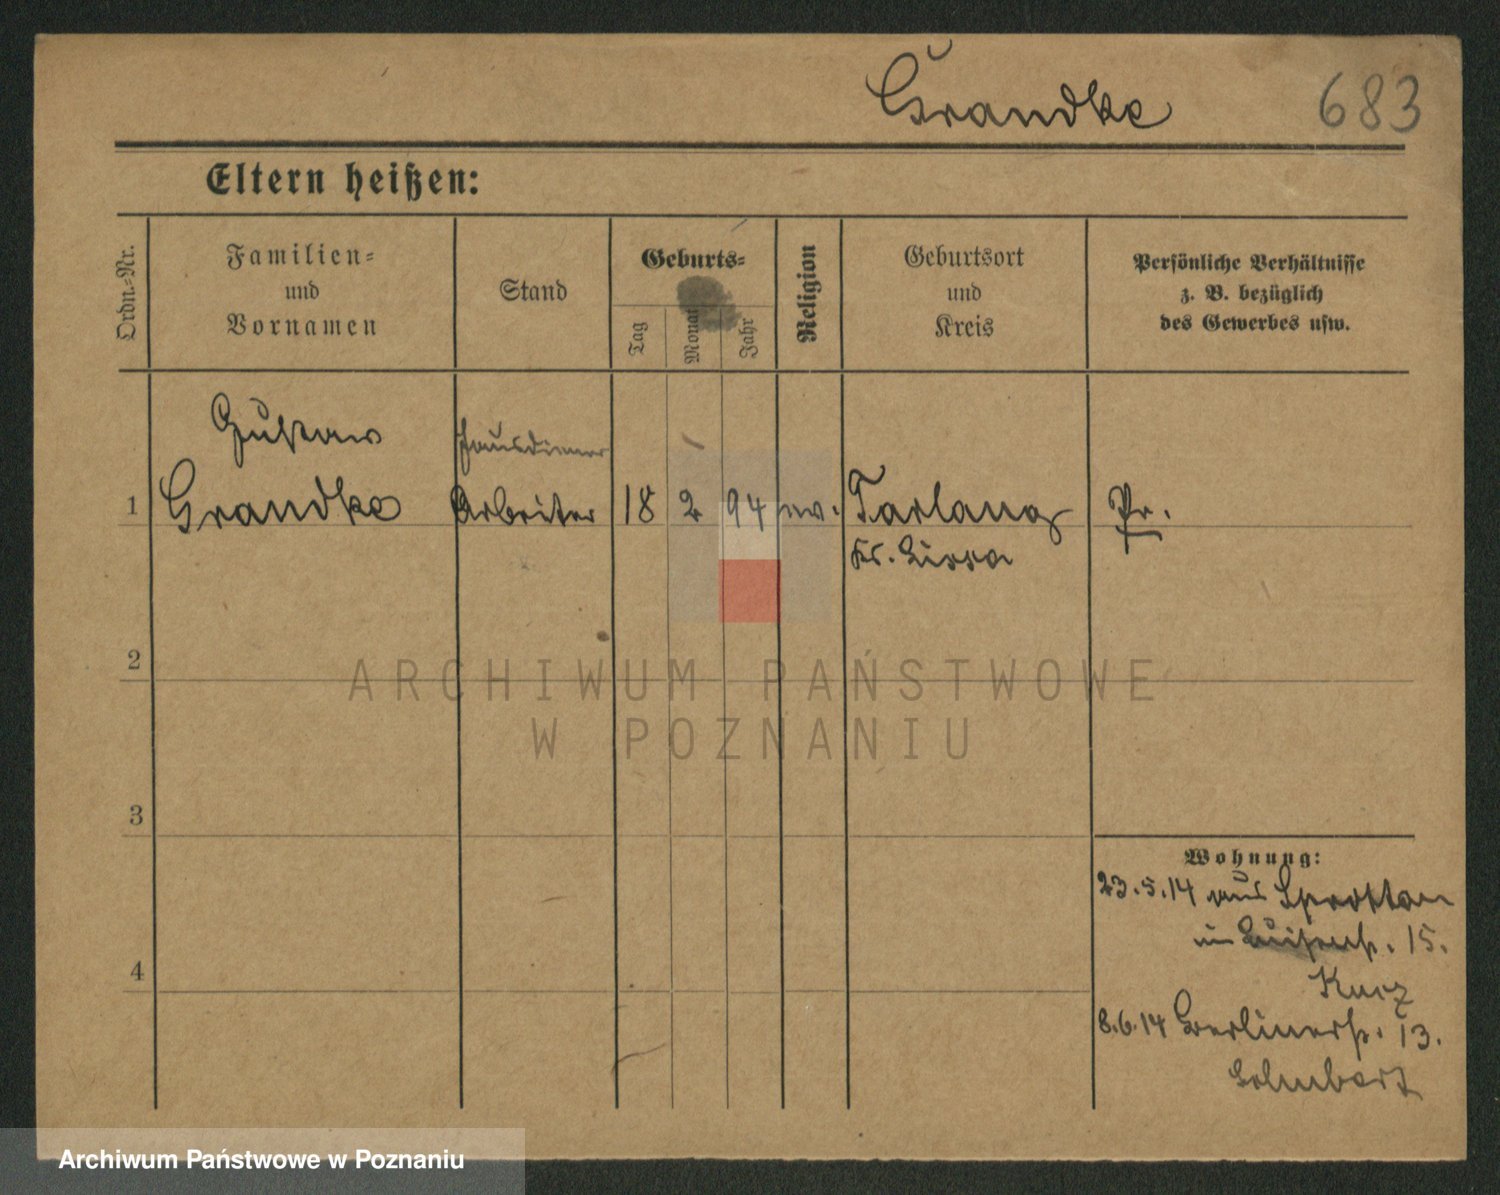 Grandke 683
Eltern heißen:
Ordn.-Nr.
Familien- und Vornamen
Stand
Geburts-
Tag
Monat
Jahr
Religion
Geburtsort und Kreis
Persönliche Verhältnisse
z. B. bezüglich
des Gewerbes usw.
Gustav
Hausdiener
1 Grandke Arbeiter 18 2 94 ev. Tarlang Pr.
Kr. Lissa
2
3
4
Wohnung:
23.5.14 aus Sprottau
in Luisenstr. 15.
Kurz
8.6.14 Berlinerstr. 13.
Schubert
ARCHIWUM PAŃSTWOWE
W POZNANIU
Archiwum Państwowe w Poznaniu